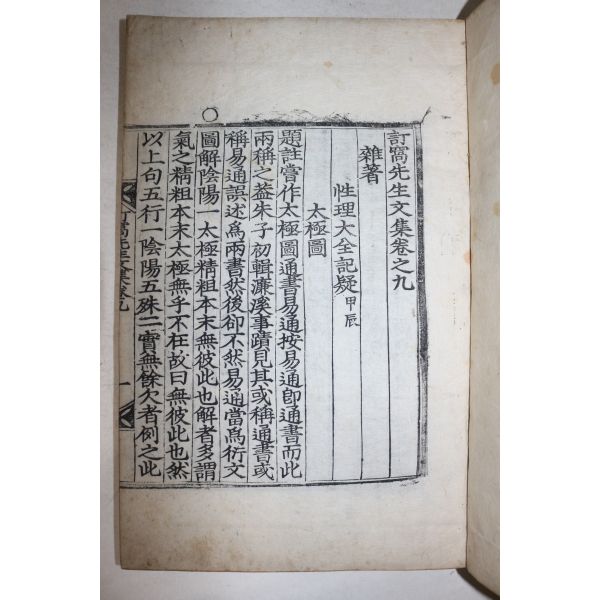 訂窩先生文集卷之九
雜著
性理大全記疑 甲辰
太極圖
題註嘗作太極圖通書易通按易通卽通書而此
兩稱之益朱子初輯濂溪事蹟見其或稱通書或
稱易通誤述爲兩書然後卻不然易通當爲衍文
圖解陰陽一太極精粗本末無彼此也解者多謂
氣之精粗本末太極無乎不在故曰無彼此也然
以上句五行一陰陽五殊二實無餘欠者例之此
訂窩先生文集卷九
一